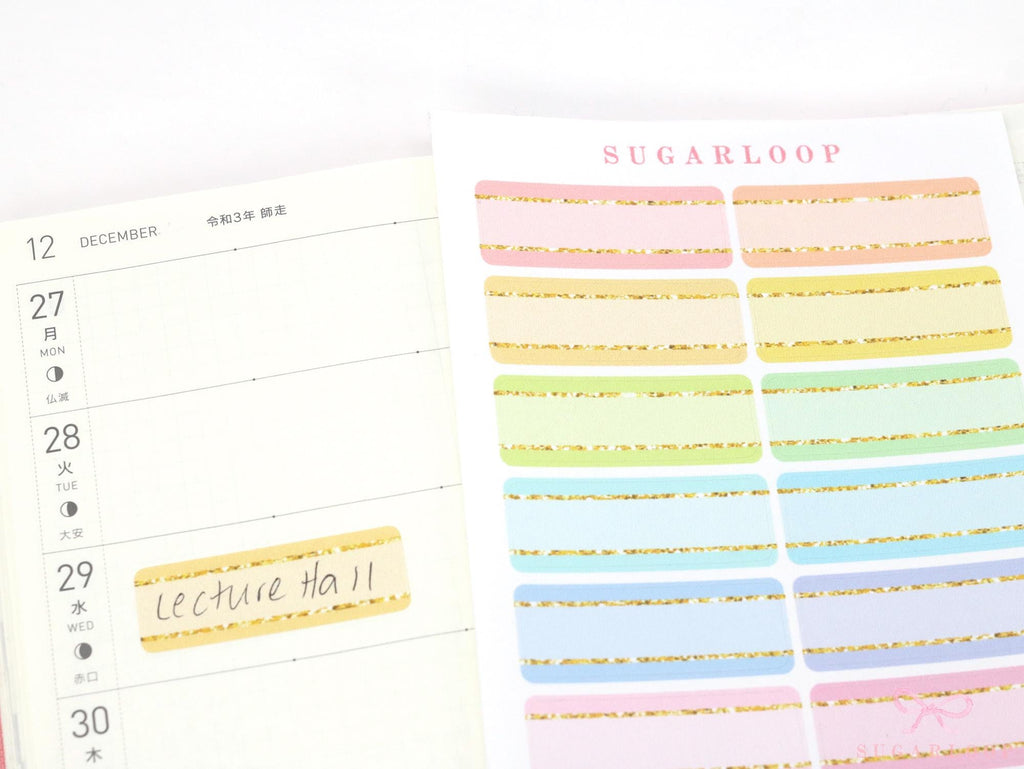 SUGARLOOP
12 DECEMBER 令和3年 師走
27
月
MON
仏滅
28
火
TUE
大安
29
水
WED
赤口
Lecture Hall
30
木
SUGARLOOP